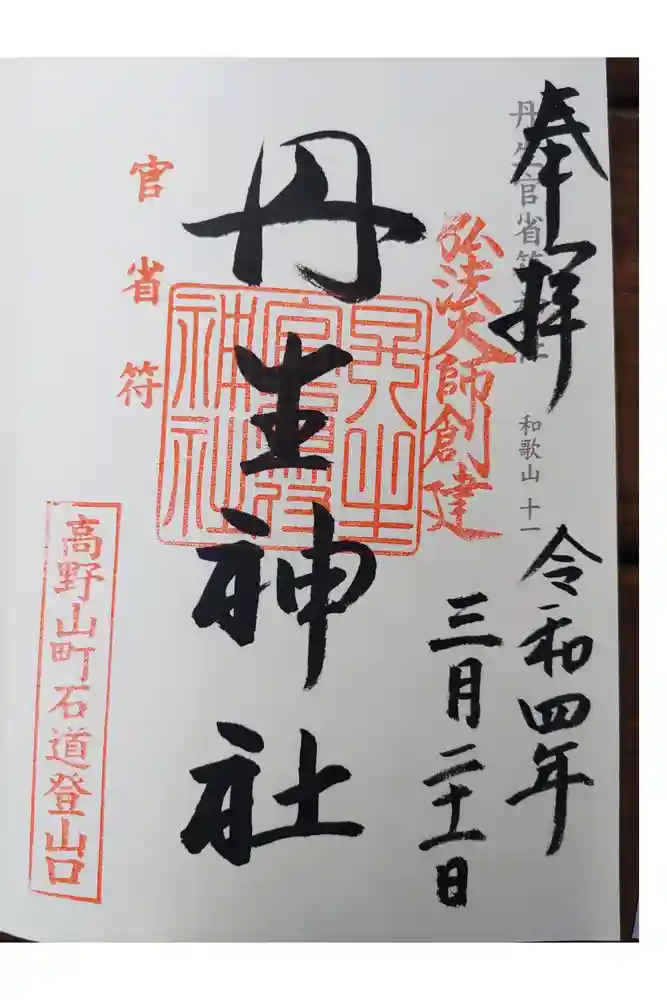 奉拝
丹生官省符神社
和歌山 十一
令和四年
三月二十一日
弘法大師創建
丹生神社
官省符
神社
官省符
高野山町石道登山口